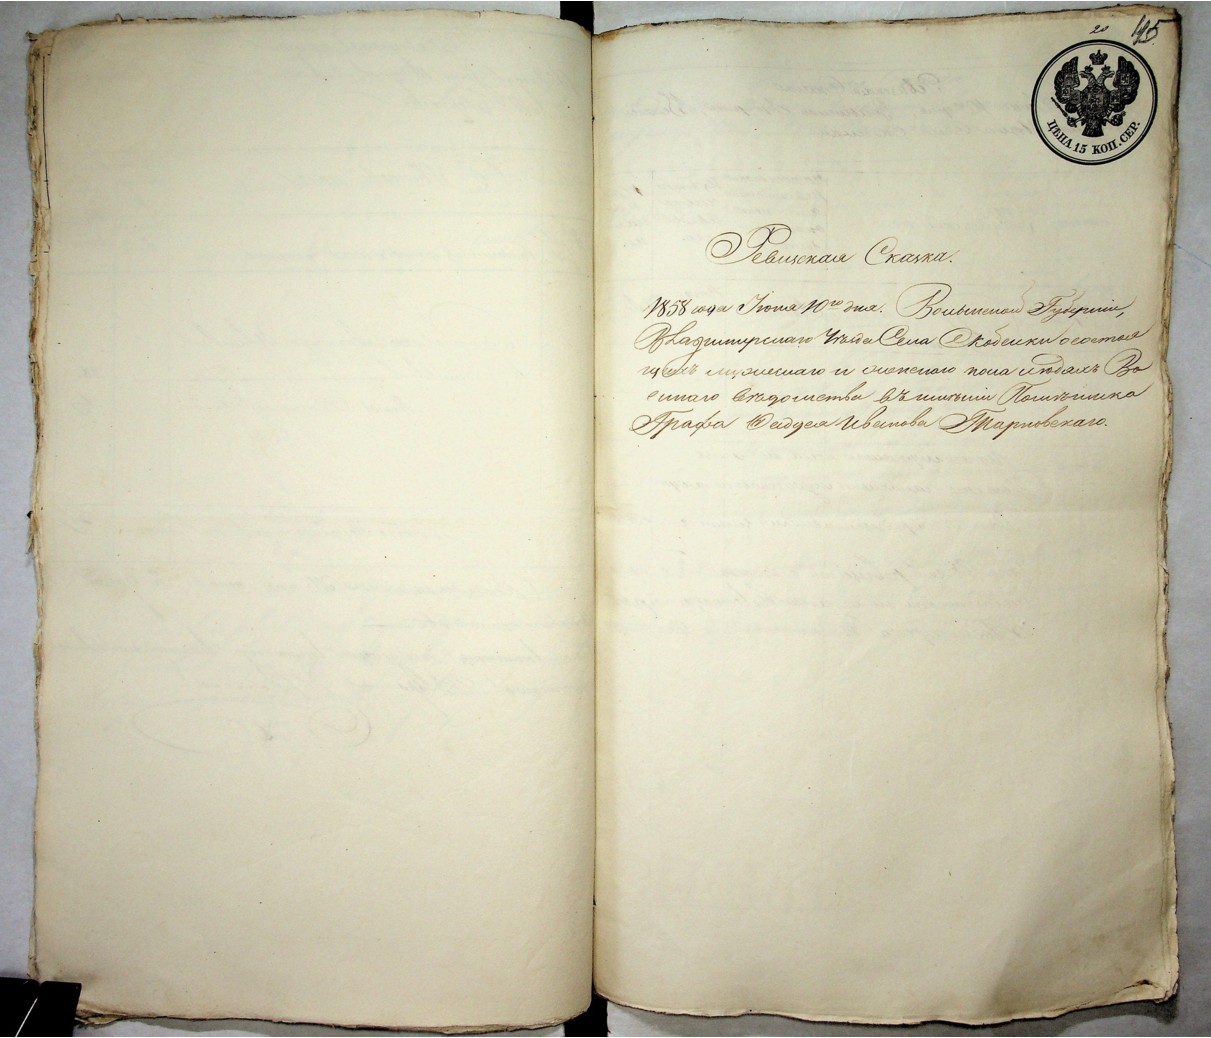 20 415
ЦѢНА 15 КОП. СЕР.
Ревизская Сказка.
1858 года Іюня 10го дня. Волынской Губерніи,
Владимирскаго Уѣзда Села Скобелки о состоя
щихъ мужескаго и женскаго пола людяхъ Во
еннаго вѣдомства въ имѣніи Помѣщика
Графа Фаддея Иванова Тарновскаго.